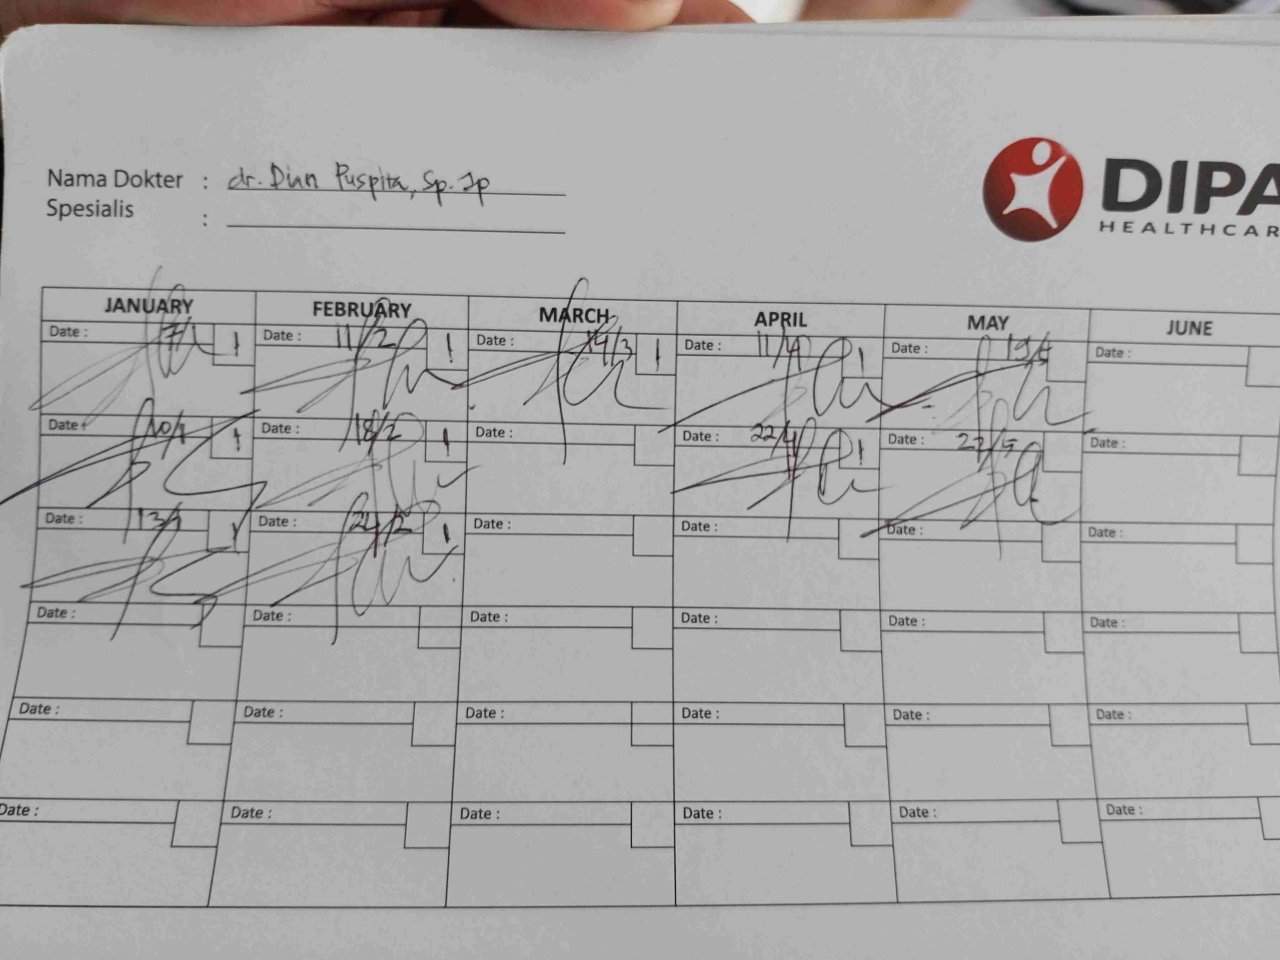 Nama Dokter : dr. Dian Puspita, Sp. Jp
Spesialis :
DIPA
HEALTHCAR
JANUARY FEBRUARY MARCH APRIL MAY JUNE
Date : 7/1 1 Date : 11/2 1 Date : 14/3 1 Date : 11/4 1 Date : 19/5 Date :
Date : 10/1 1 Date : 18/2 1 Date : Date : 22/4 1 Date : 27/5 Date :
Date : 13/1 1 Date : 24/2 1 Date : Date : Date : Date :
Date : Date : Date : Date : Date : Date :
Date : Date : Date : Date : Date : Date :
Date : Date : Date : Date : Date : Date :